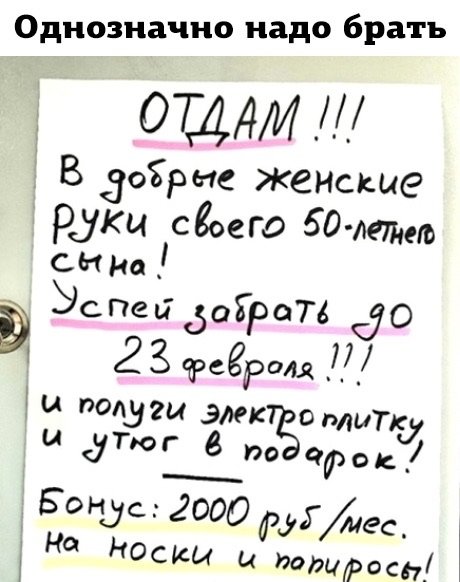 Однозначно надо брать
ОТДАМ!!!
В добрые женские
руки своего 50-летнего
сына!
Успей забрать до
23 февраля!!!
и получи электроплитку
и утюг в подарок!
Бонус: 2000 руб/мес.
на носки и папиросы!